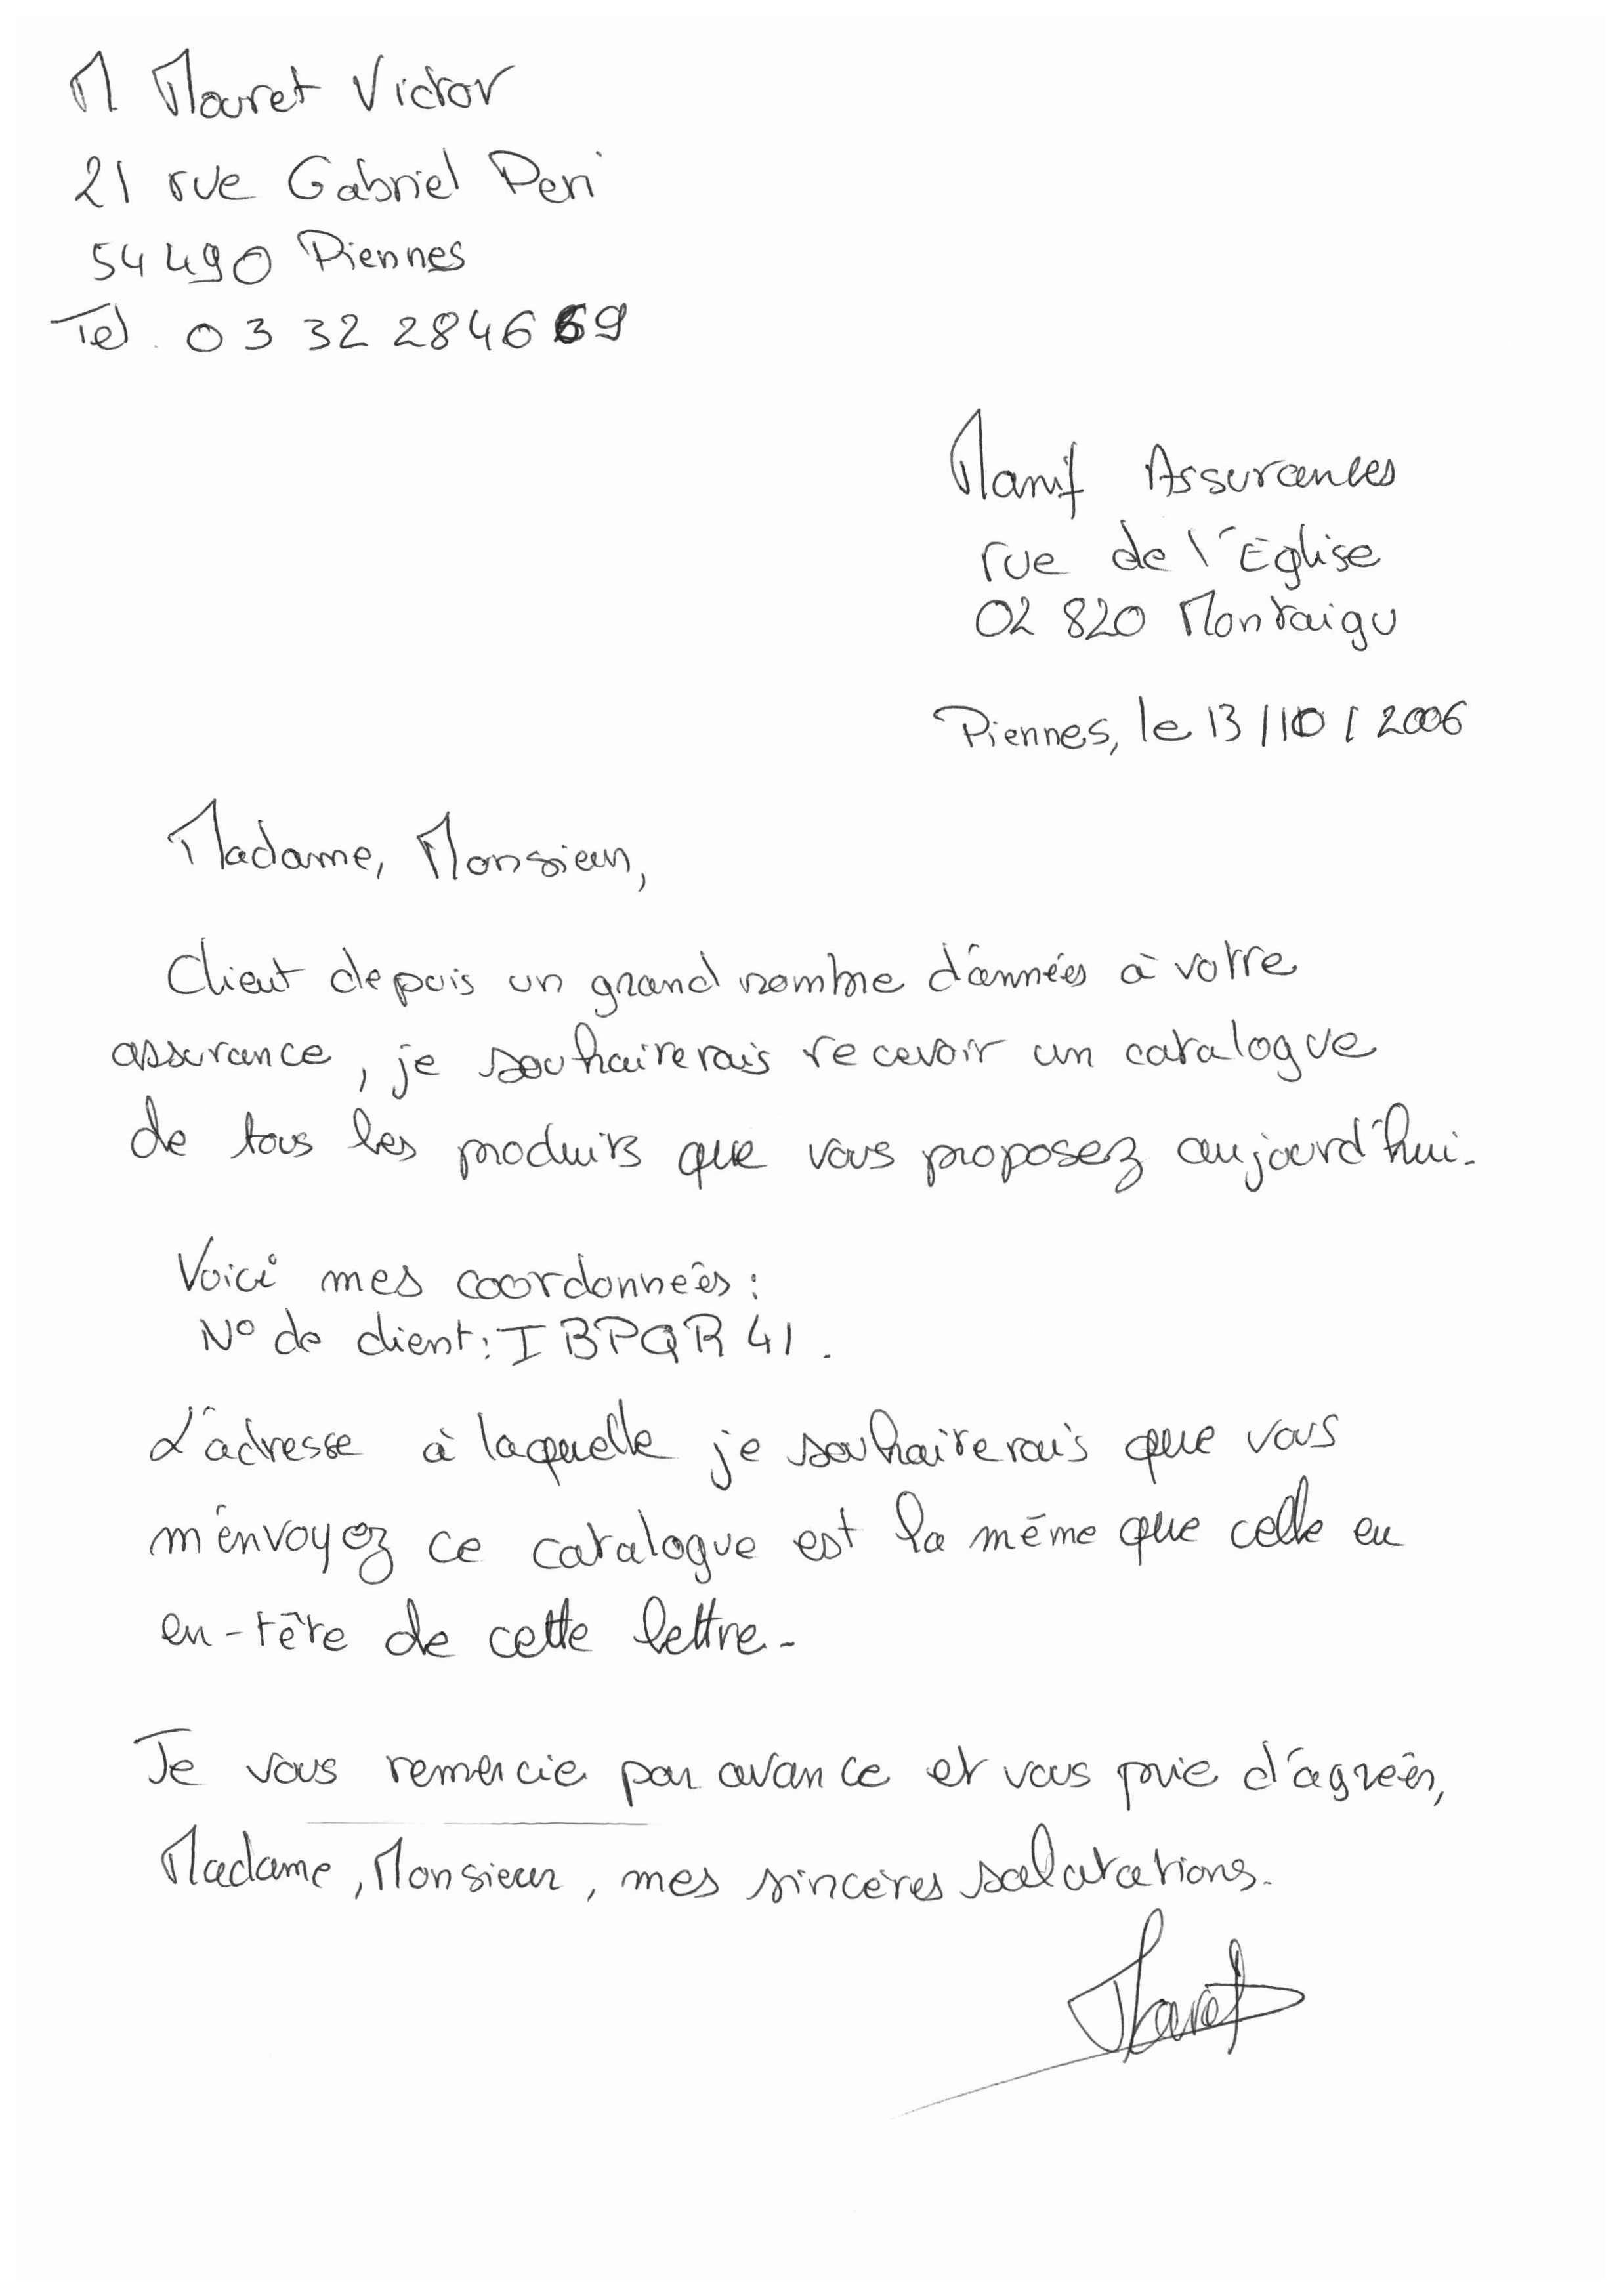 M Mouret Victor
21 rue Gabriel Peri
54490 Piennes
Tel. 03 32 28 46 69
Manif Assurances
rue de l'Eglise
02 820 Montaigu
Piennes, le 13/10/2006
Madame, Monsieur,
Client depuis un grand nombre d'années à votre
assurance, je souhaiterais recevoir un catalogue
de tous les produits que vous proposez aujourd'hui.
Voici mes coordonnées :
N° de client : IBPQR 41.
L'adresse à laquelle je souhaiterais que vous
m'envoyez ce catalogue est la même que celle en
en-tête de cette lettre.
Je vous remercie par avance et vous prie d'agréer,
Madame, Monsieur, mes sincères salutations.
Mouret